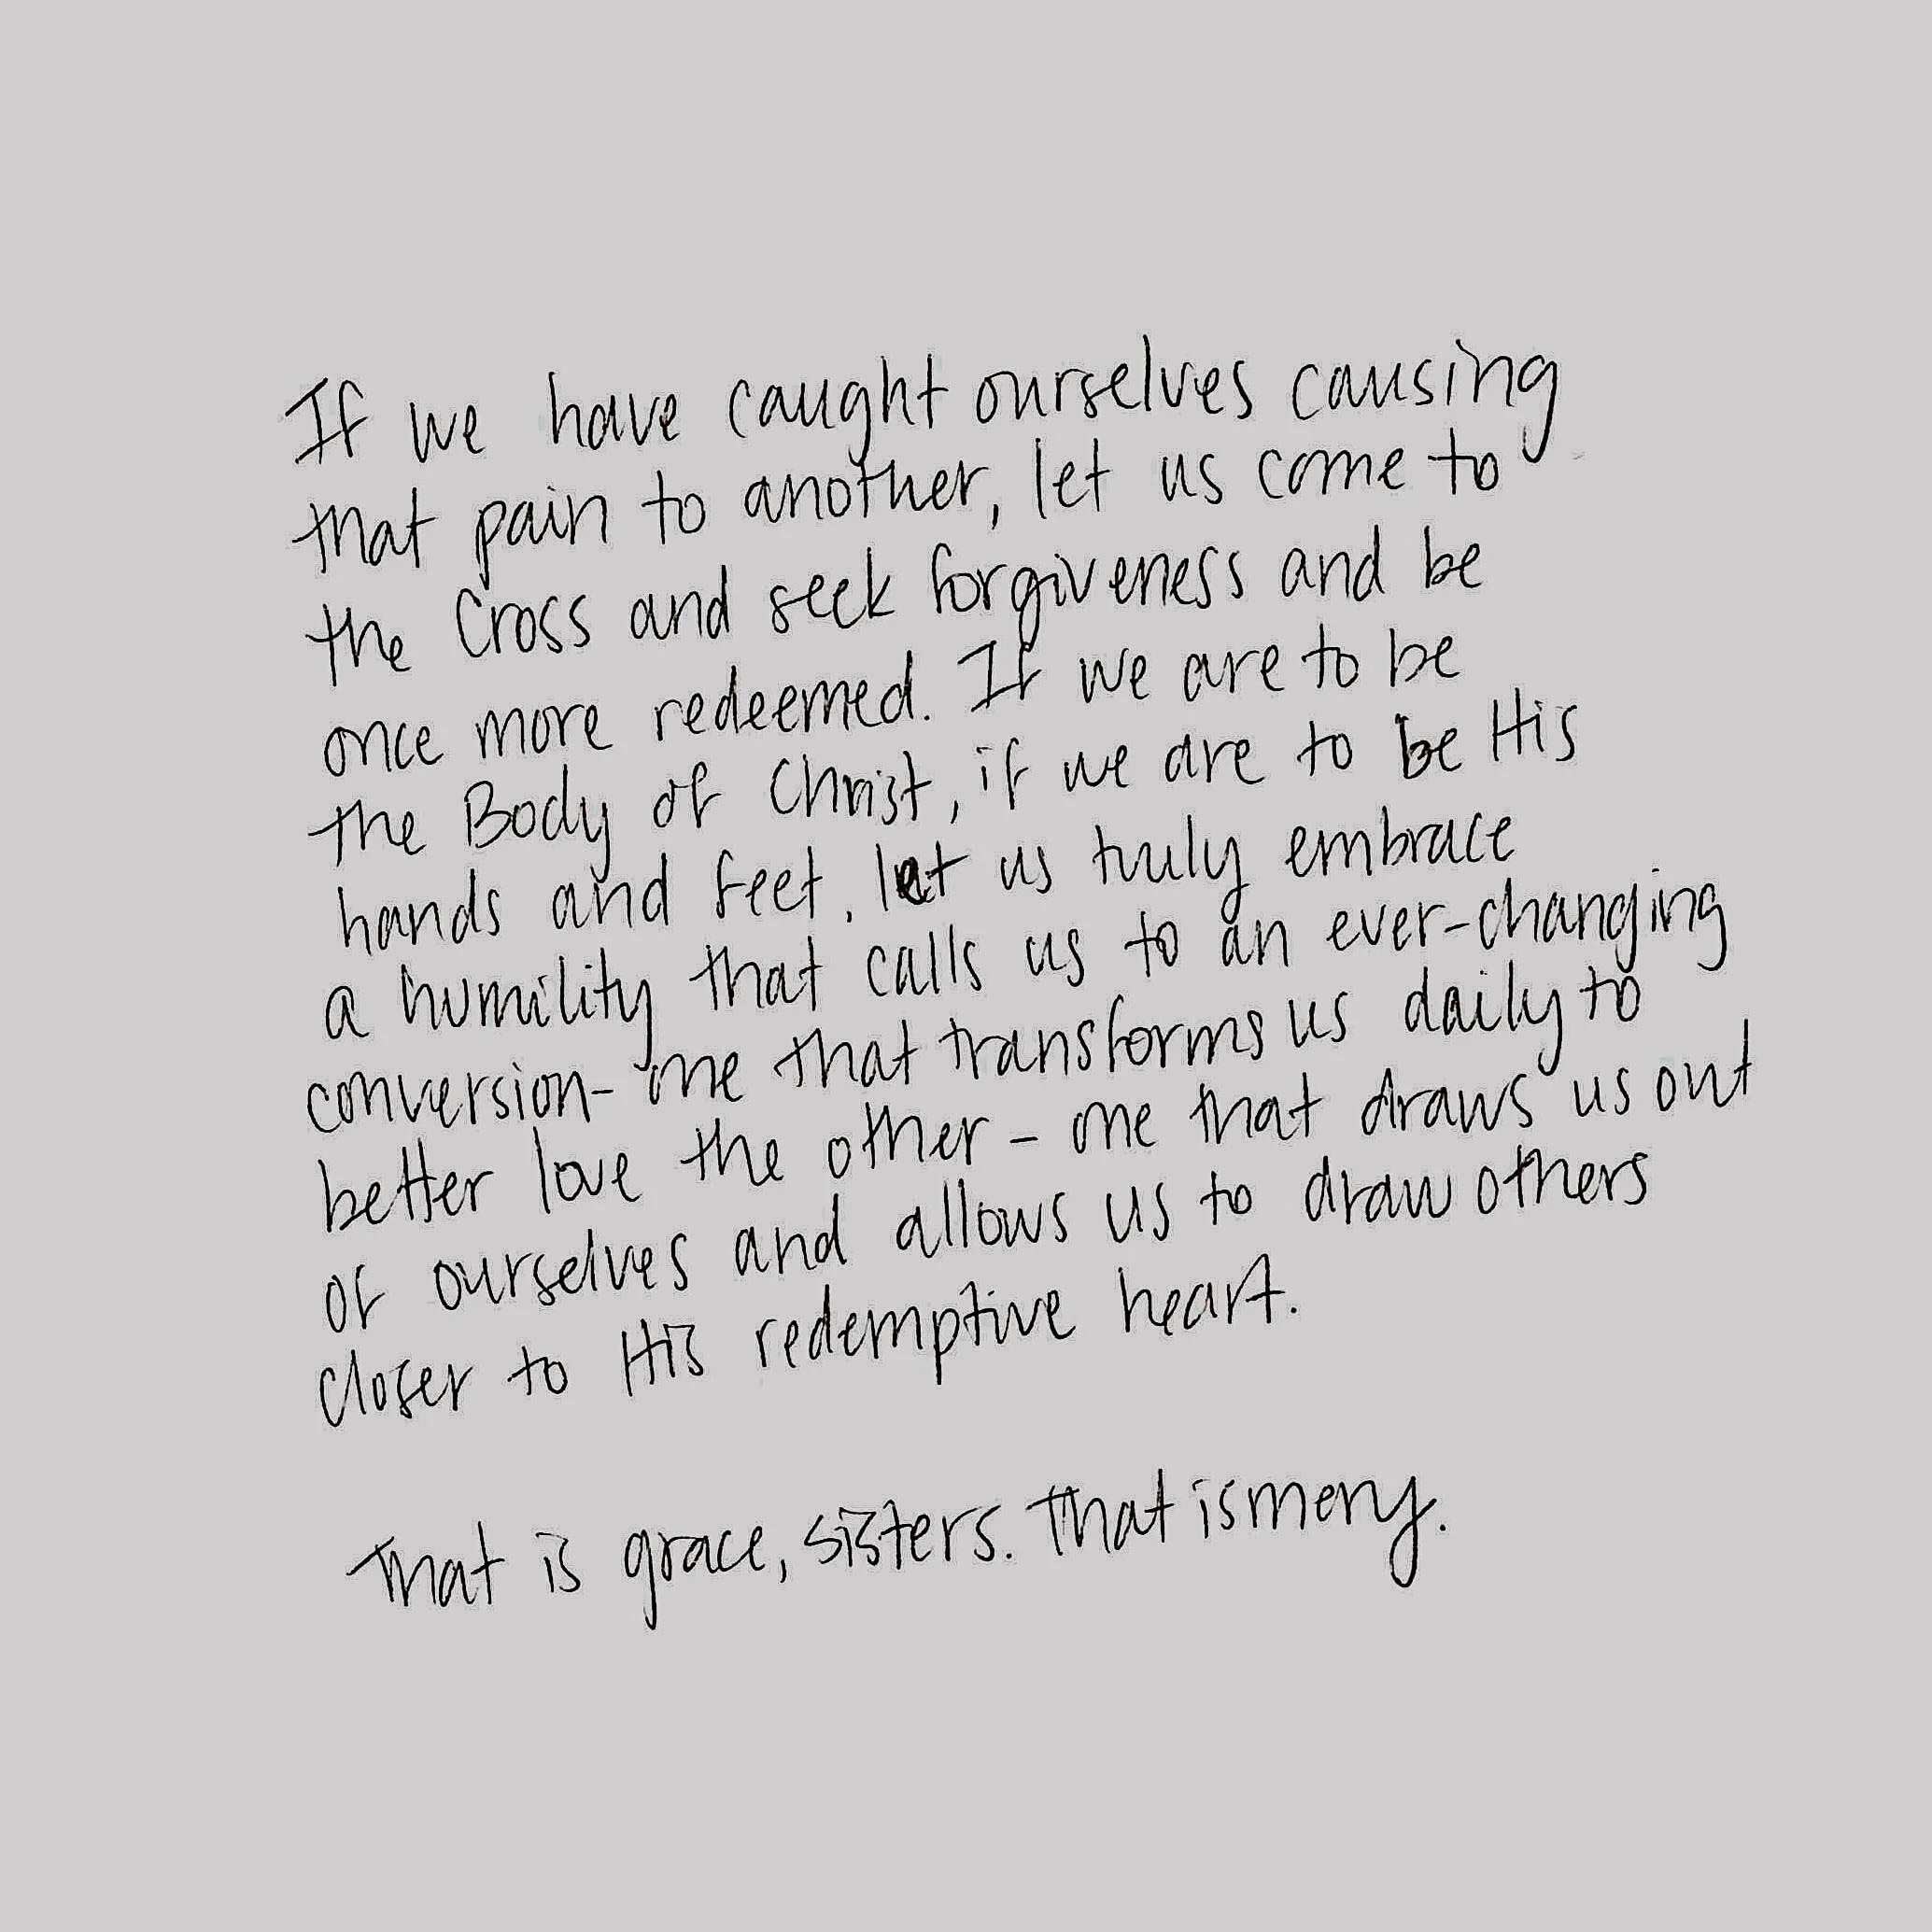 If we have caught ourselves causing
that pain to another, let us come to
the Cross and seek forgiveness and be
once more redeemed. If we are to be
the Body of Christ, if we are to be His
hands and feet, let us truly embrace
a humility that calls us to an ever-changing
conversion- one that transforms us daily to
better love the other - one that draws us out
of ourselves and allows us to draw others
closer to His redemptive heart.
That is grace, sisters. That is mercy.